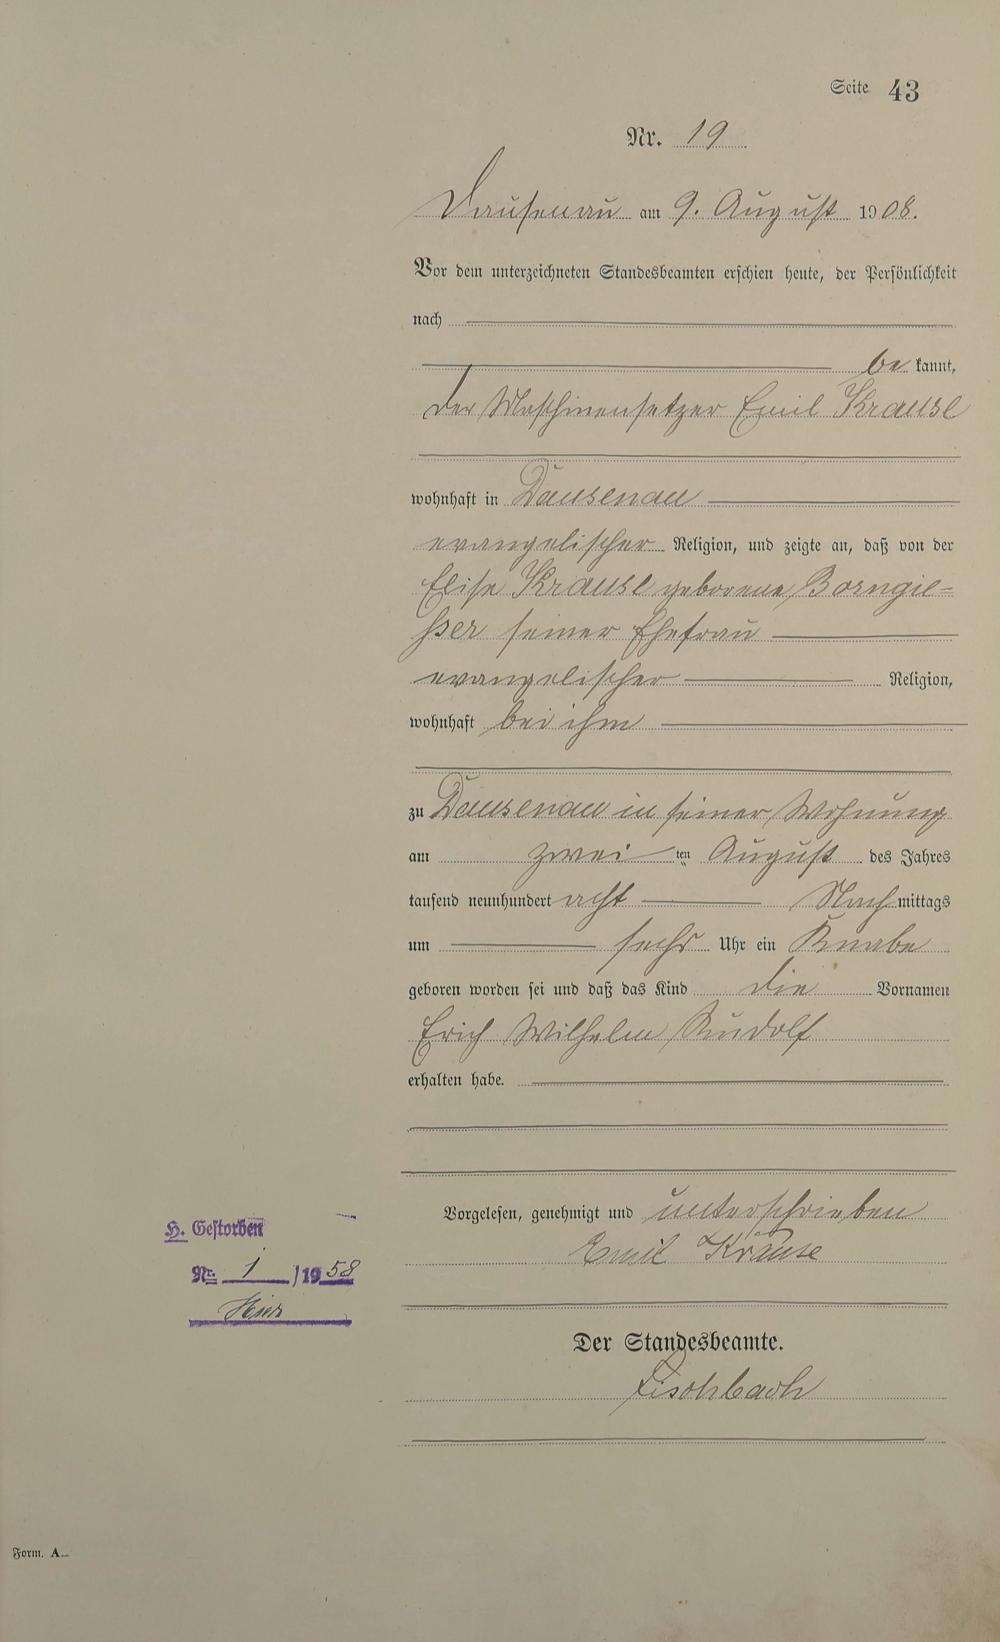 Seite 43
Nr. 19
Dausenau am 9. August 1908.
Vor dem unterzeichneten Standesbeamten erschien heute, der Persönlichkeit
nach
be kannt,
der Maschinensetzer Emil Krause
wohnhaft in Dausenau
evangelischer Religion, und zeigte an, daß von der
Elise Krause geborene Borngie-
ßer seiner Ehefrau
evangelischer Religion,
wohnhaft bei ihm
zu Dausenau in seiner Wohnung
am zwei ten August des Jahres
tausend neunhundert acht Nach mittags
um sechs Uhr ein Knabe
geboren worden sei und daß das Kind die Vornamen
Erich Wilhelm Rudolf
erhalten habe.
Vorgelesen, genehmigt und unterschrieben
Emil Krause
H. Gestorben
Nr. 1 /1958
Hier
Der Standesbeamte.
Fischbach
Form. A.